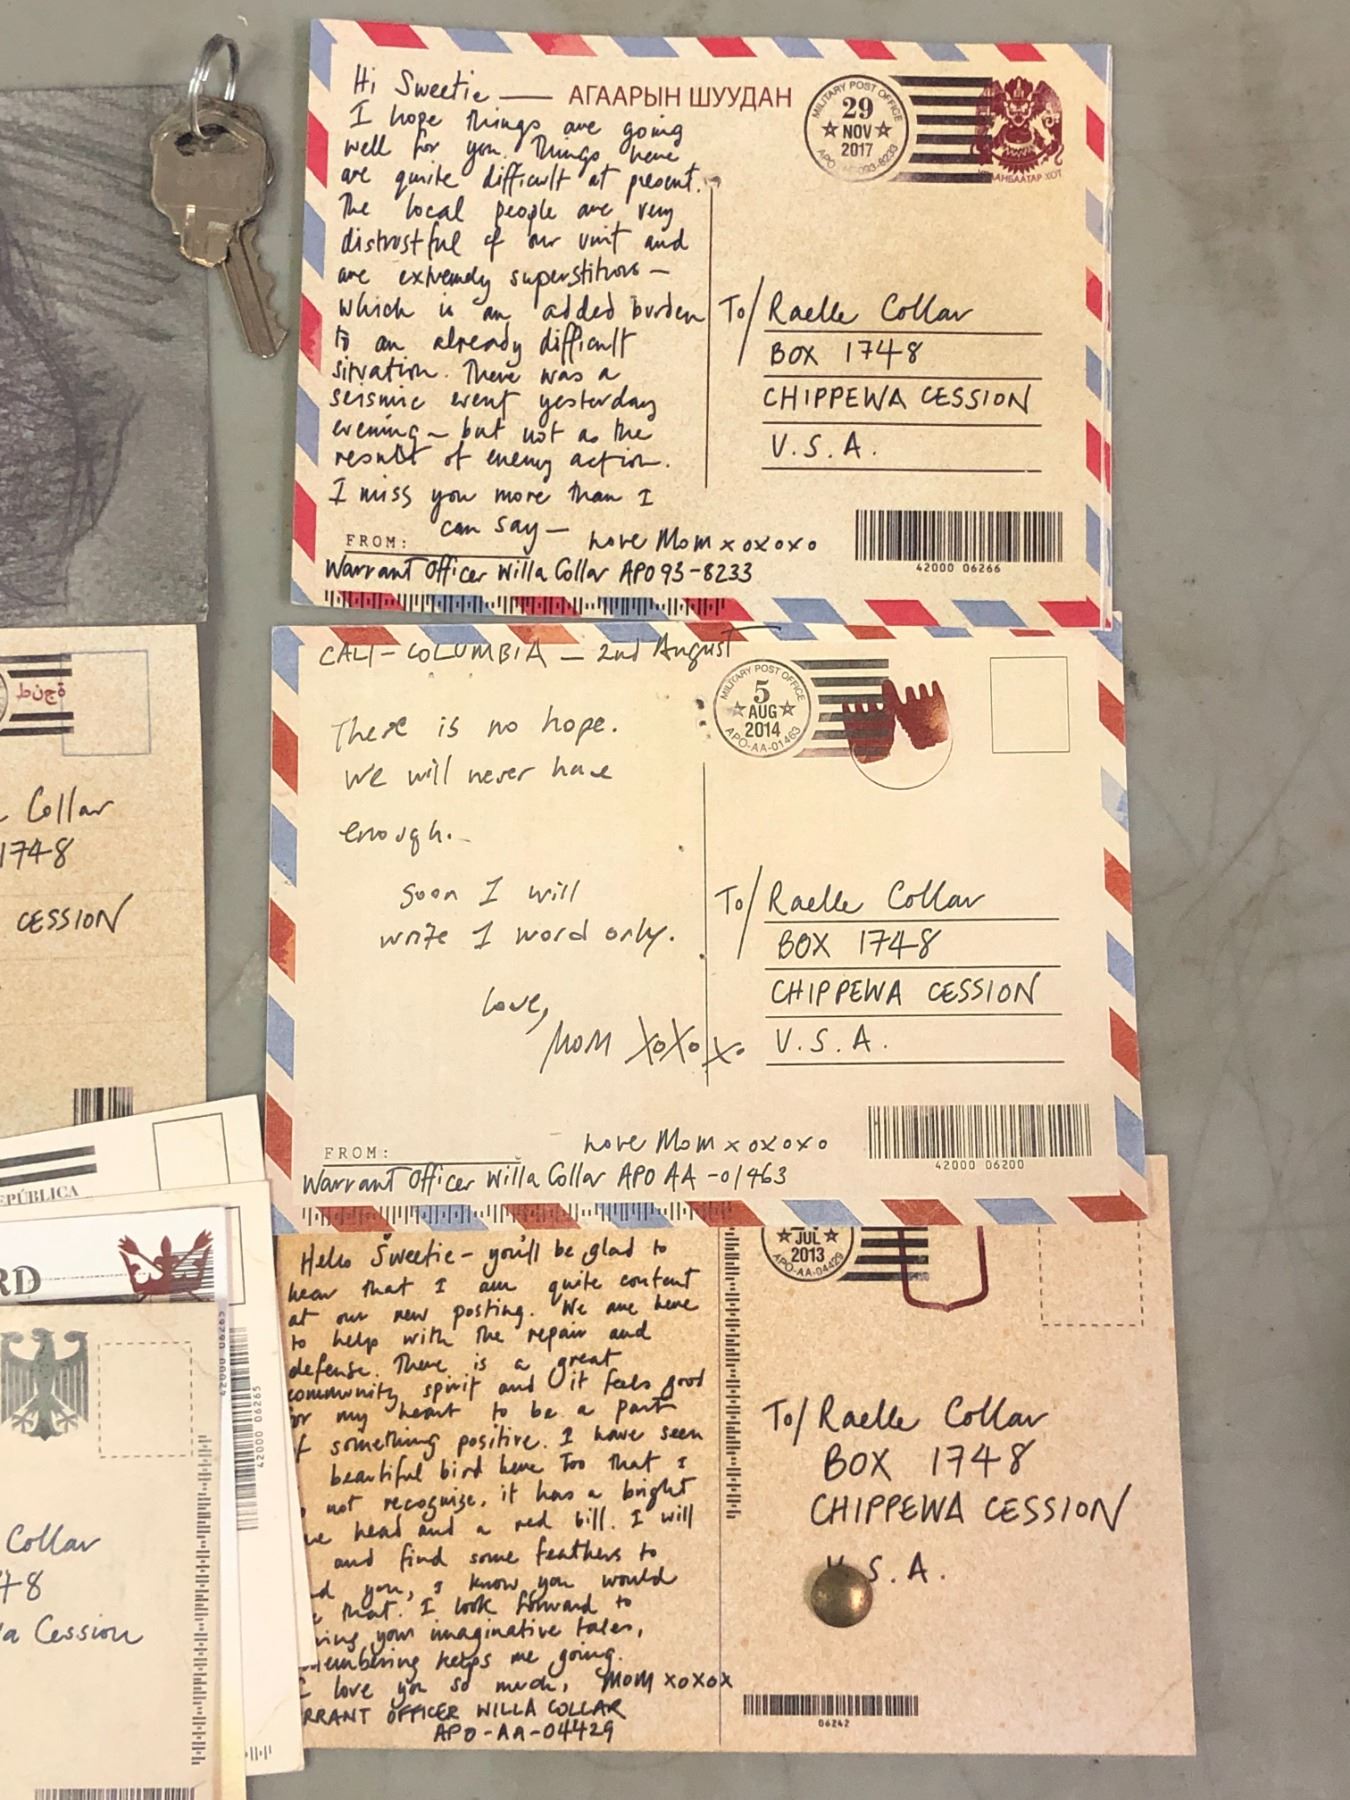 Hi Sweetie —
АГААРЫН ШУУДАН
MILITARY POST OFFICE
29
NOV
2017
I hope things are going
well for you. Things here
are quite difficult at present.
The local people are very
distrustful of our unit and
are extremely superstitious —
which is an added burden
to an already difficult
situation. There was a
seismic event yesterday
evening — but not as the
result of enemy action.
I miss you more than I
can say —
Love Mom xoxoxo
FROM:
Warrant Officer Willa Collar APO 93-8233
To/ Raelle Collar
BOX 1748
CHIPPEWA CESSION
U.S.A.
42000 06266
CALI - COLUMBIA — 2nd August
MILITARY POST OFFICE
5
AUG
2014
APO-AA-01463
There is no hope.
We will never have
enough.
Soon I will
write 1 word only.
Love,
MOM XoXoXo
Love Mom xoxoxo
FROM:
Warrant Officer Willa Collar APO AA -01463
To/ Raelle Collar
BOX 1748
CHIPPEWA CESSION
U.S.A.
42000 06200
JUL
2013
APO-AA-04429
Hello Sweetie - you'll be glad to
hear that I am quite content
at our new posting. We are here
to help with the repair and
defense. There is a great
community spirit and it feels good
my heart to be a part
something positive. I have seen
beautiful bird here too that I
not recognize, it has a bright
head and a red bill. I will
and find some feathers to
you, I know you would
that. I look forward to
your imaginative tales,
keeps me going.
I love you so much, MOM xoxox
OFFICER WILLA COLLAR
APO-AA-04429
To/ Raelle Collar
BOX 1748
CHIPPEWA CESSION
U.S.A.
06242
طنجة
Collar
1748
CESSION
42000 06265
42000 06265
Collar
48
Cession